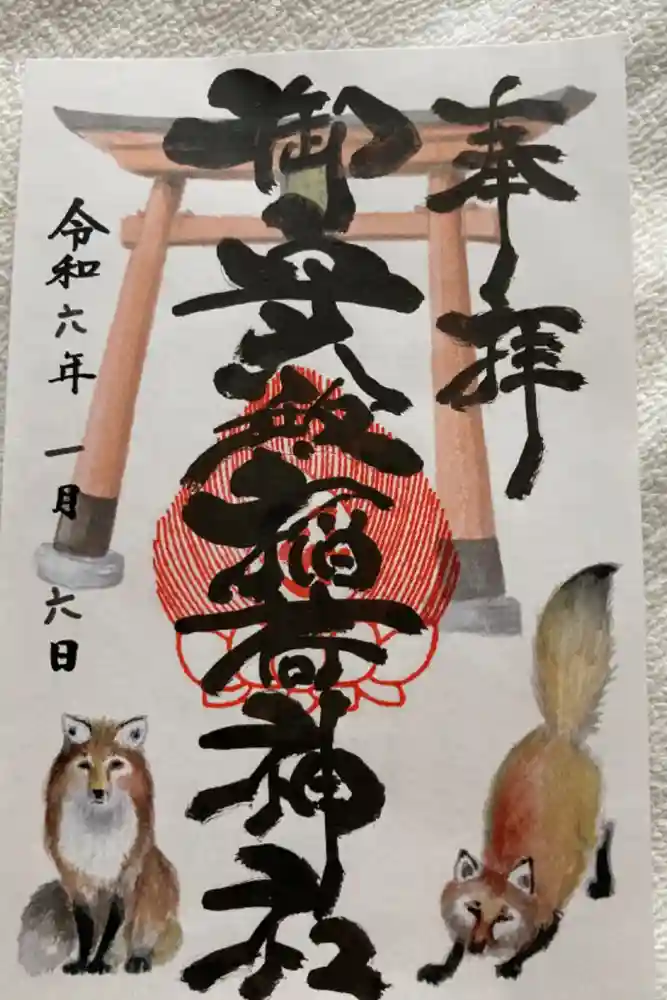 奉拝
御稲荷神社
令和六年一月六日